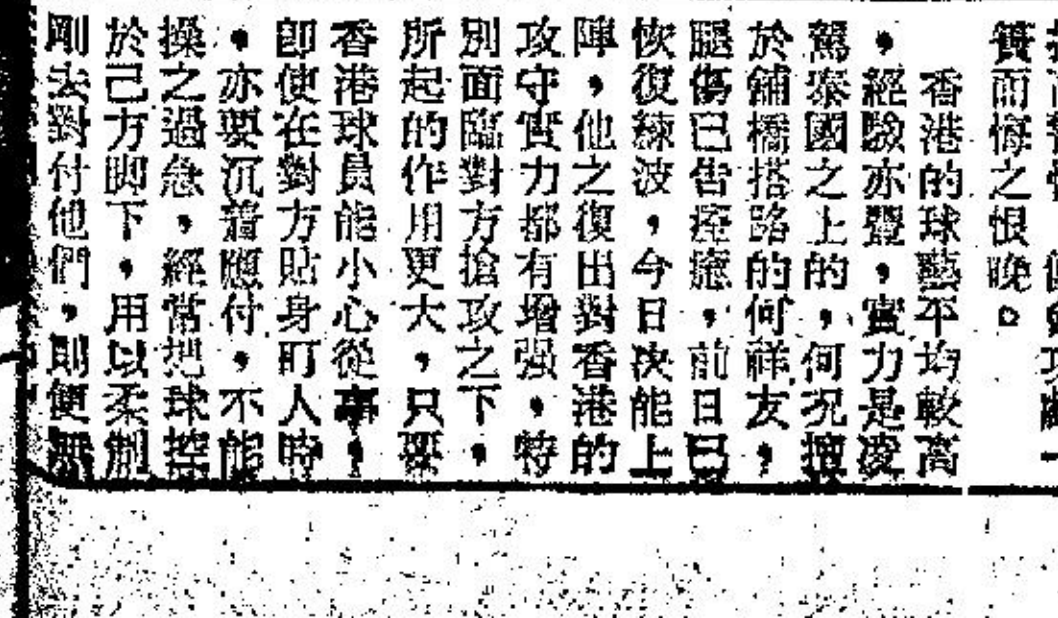 簣而悔之恨晚。
香港的球藝平均較高
，經驗亦豐，實力是凌
駕泰國之上的，何況擅
於舖橋搭路的何祥友，
腿傷已告痊癒，前日已
恢復練波，今日決能上
陣，他之復出對香港的
攻守實力都有增强，特
別面臨對方搶攻之下，
所起的作用更大，只要
香港球員能小心從事，
即使在對方貼身盯人時
，亦要沉着應付，不能
操之過急，經常把球控
於己方脚下，用以柔制
剛去對付他們，則便無